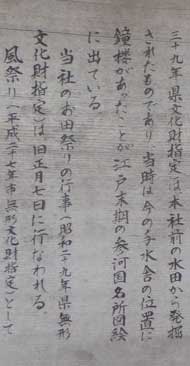 三十九年県文化財指定)は本社前の水田から発掘
されたものであり 当時は今の手水舎の位置に
鐘楼があったことが江戸末期の参河国名所図絵
に出ている。
当社のお田祭りの行事(昭和二十九年県無形
文化財指定)は旧正月七日に行なわれる。
風祭り(平成二十七年市無形文化財指定)として